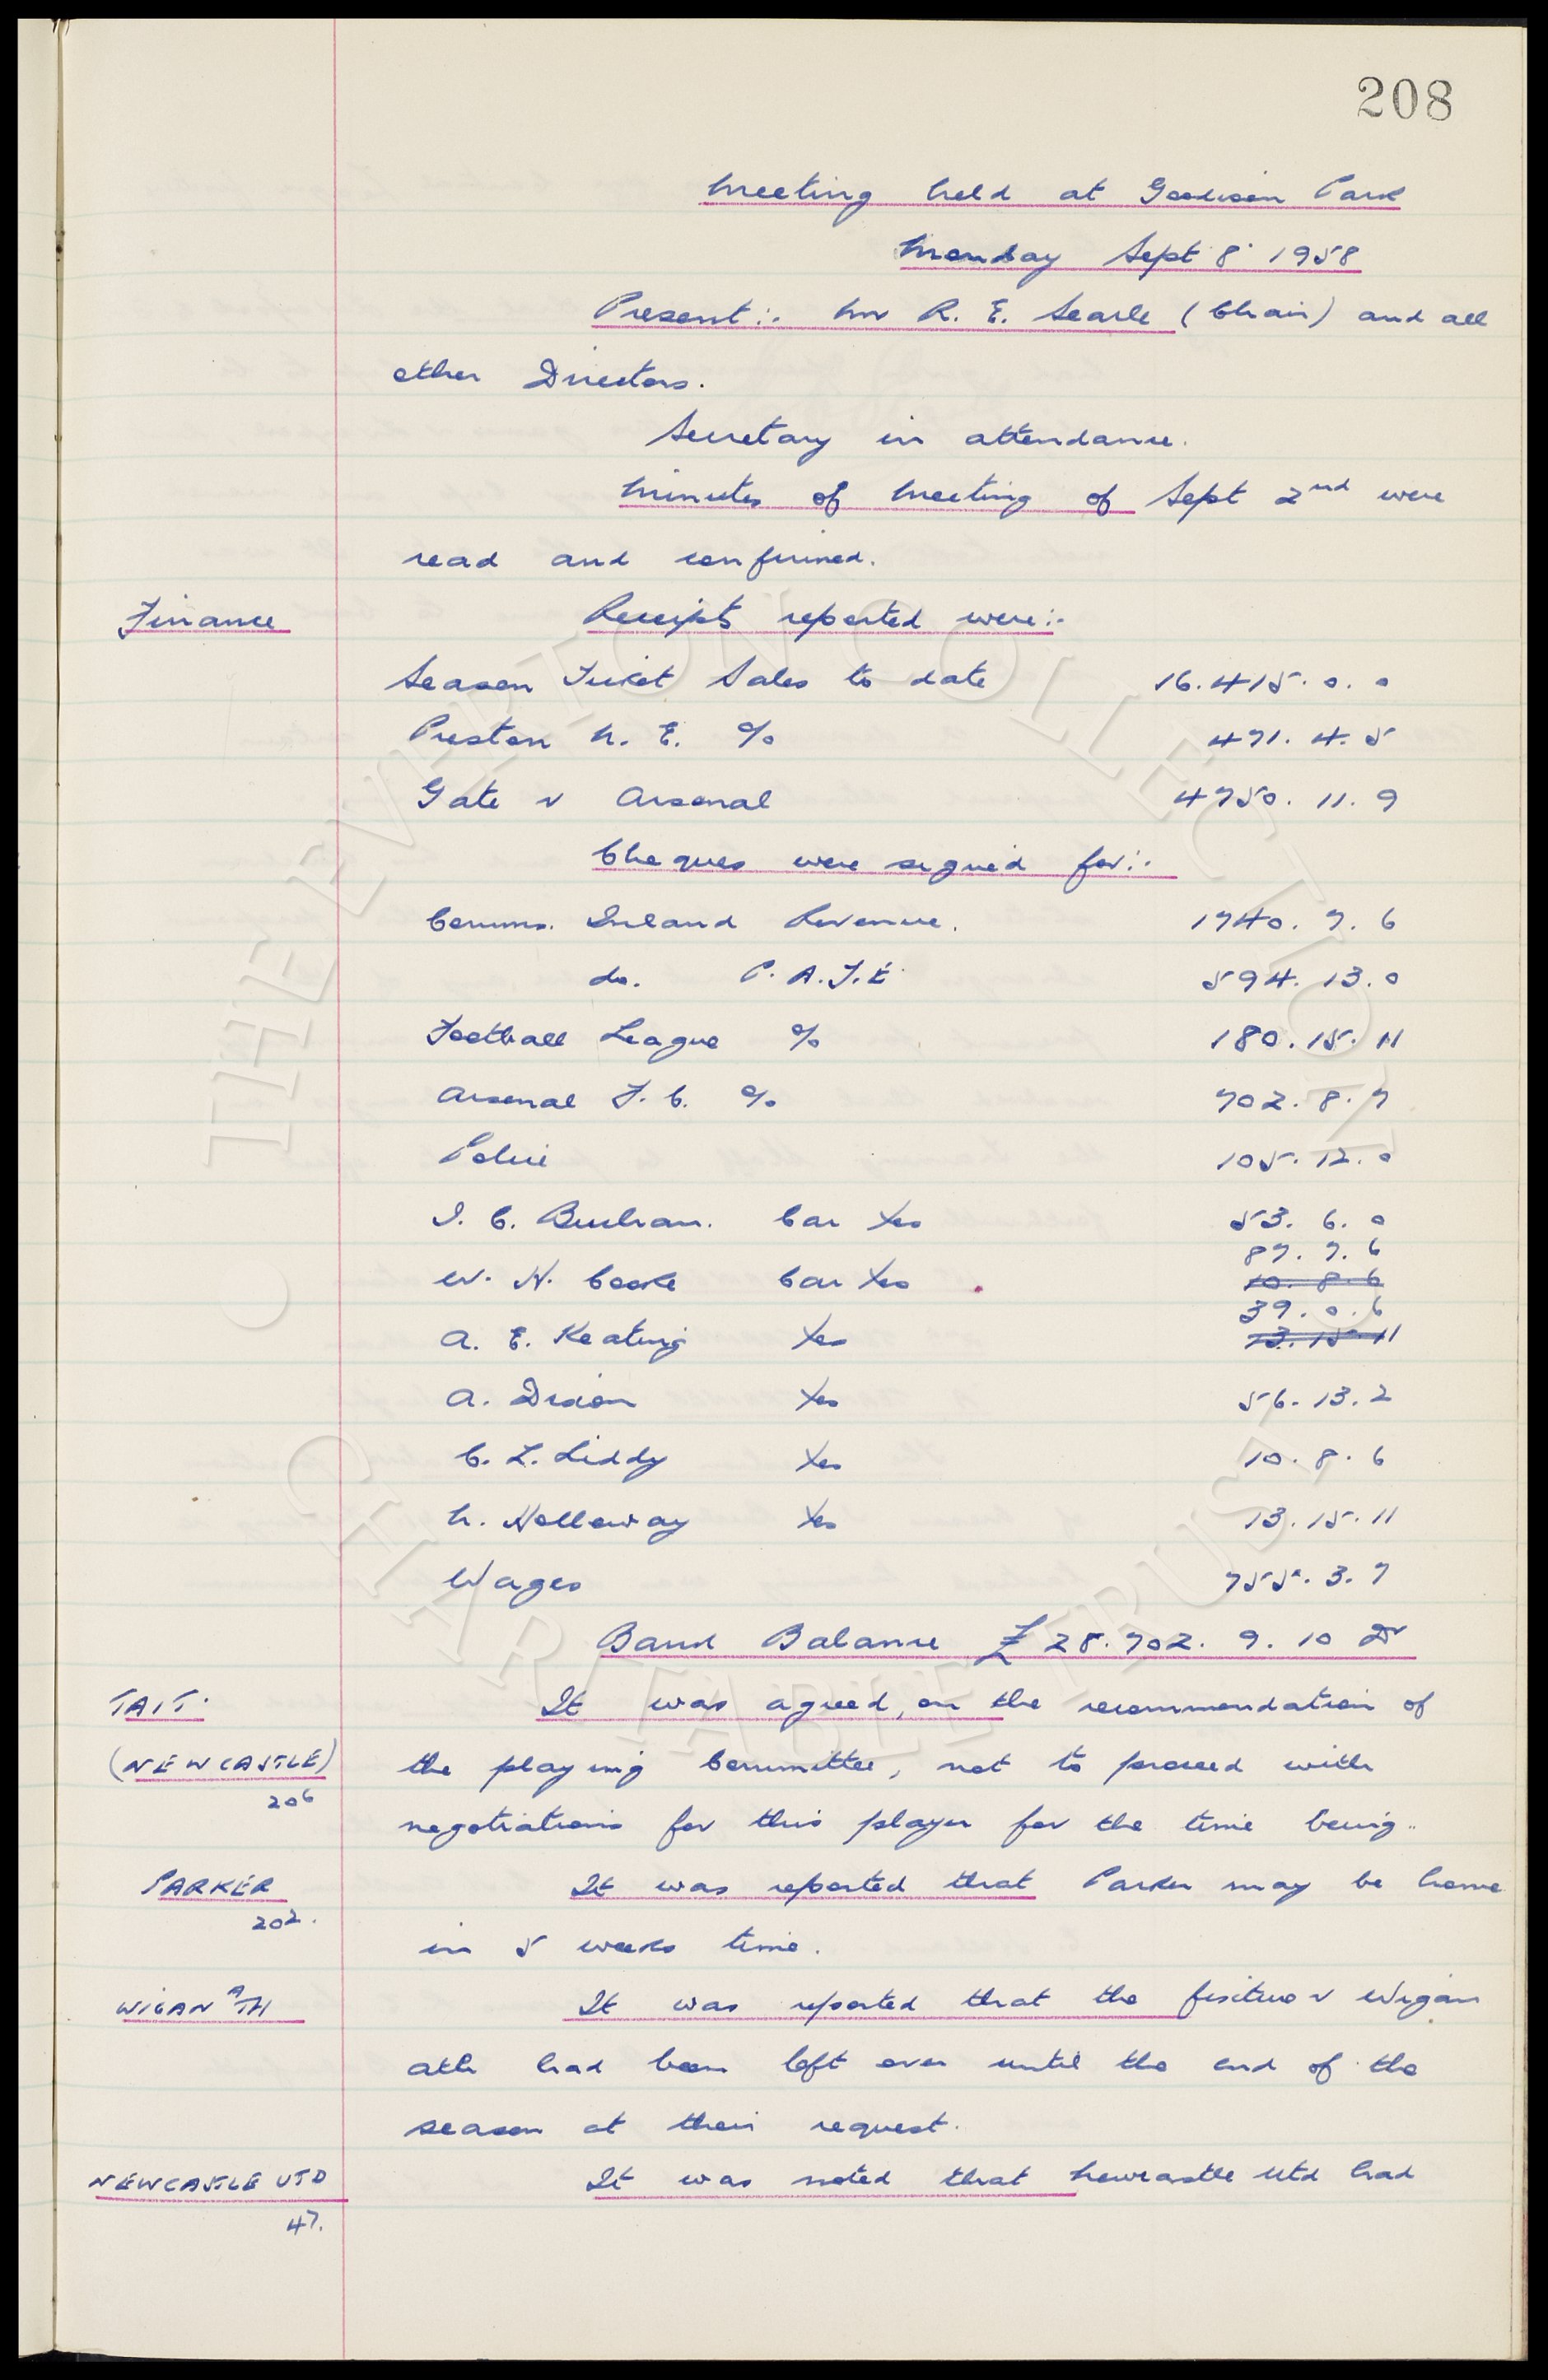 208
Meeting held at Goodison Park
Monday Sept 8 1958
Present:- Mr R. E. Searle (Chair) and all
other Directors.
Secretary in attendance.
Minutes of Meeting of Sept 2nd were
read and confirmed.
Finance Receipts reported were:-
Season Ticket Sales to date 16.415. 0. 0
Preston N. E. % 471. 4. 5
Gate v Arsenal 4750. 11. 9
Cheques were signed for:-
Comms. Inland Revenue. 1740. 7. 6
do. P. A. Y. E. 594. 13. 0
Football League % 180. 15. 11
Arsenal F. C. % 702. 8. 7
Police 105. 12. 0
J. C. Buchan. Car Xes 53. 6. 0
87. 7. 6
W. H. Cooke Car Xes 10. 8. 6
39. 0. 6
A. E. Keating Xes 13. 15. 11
A. Dixon Xes 56. 13. 2
C. L. Liddy Xes 10. 8. 6
H. Holloway Xes 13. 15. 11
Wages 755. 3. 7
Bank Balance £ 28.702. 9. 10 Dr
TAIT. It was agreed, on the recommendation of
(NEWCASTLE) the playing Committee, not to proceed with
206
negotiations for this player for the time being.
PARKER It was reported that Parker may be home
202.
in 5 weeks time.
WIGAN ATH It was reported that the fixture v Wigan
Ath had been left over until the end of the
season at their request.
NEWCASTLE UTD It was noted that Newcastle Utd had
47.
© THE EVERTON COLLECTION
CHARITABLE TRUST